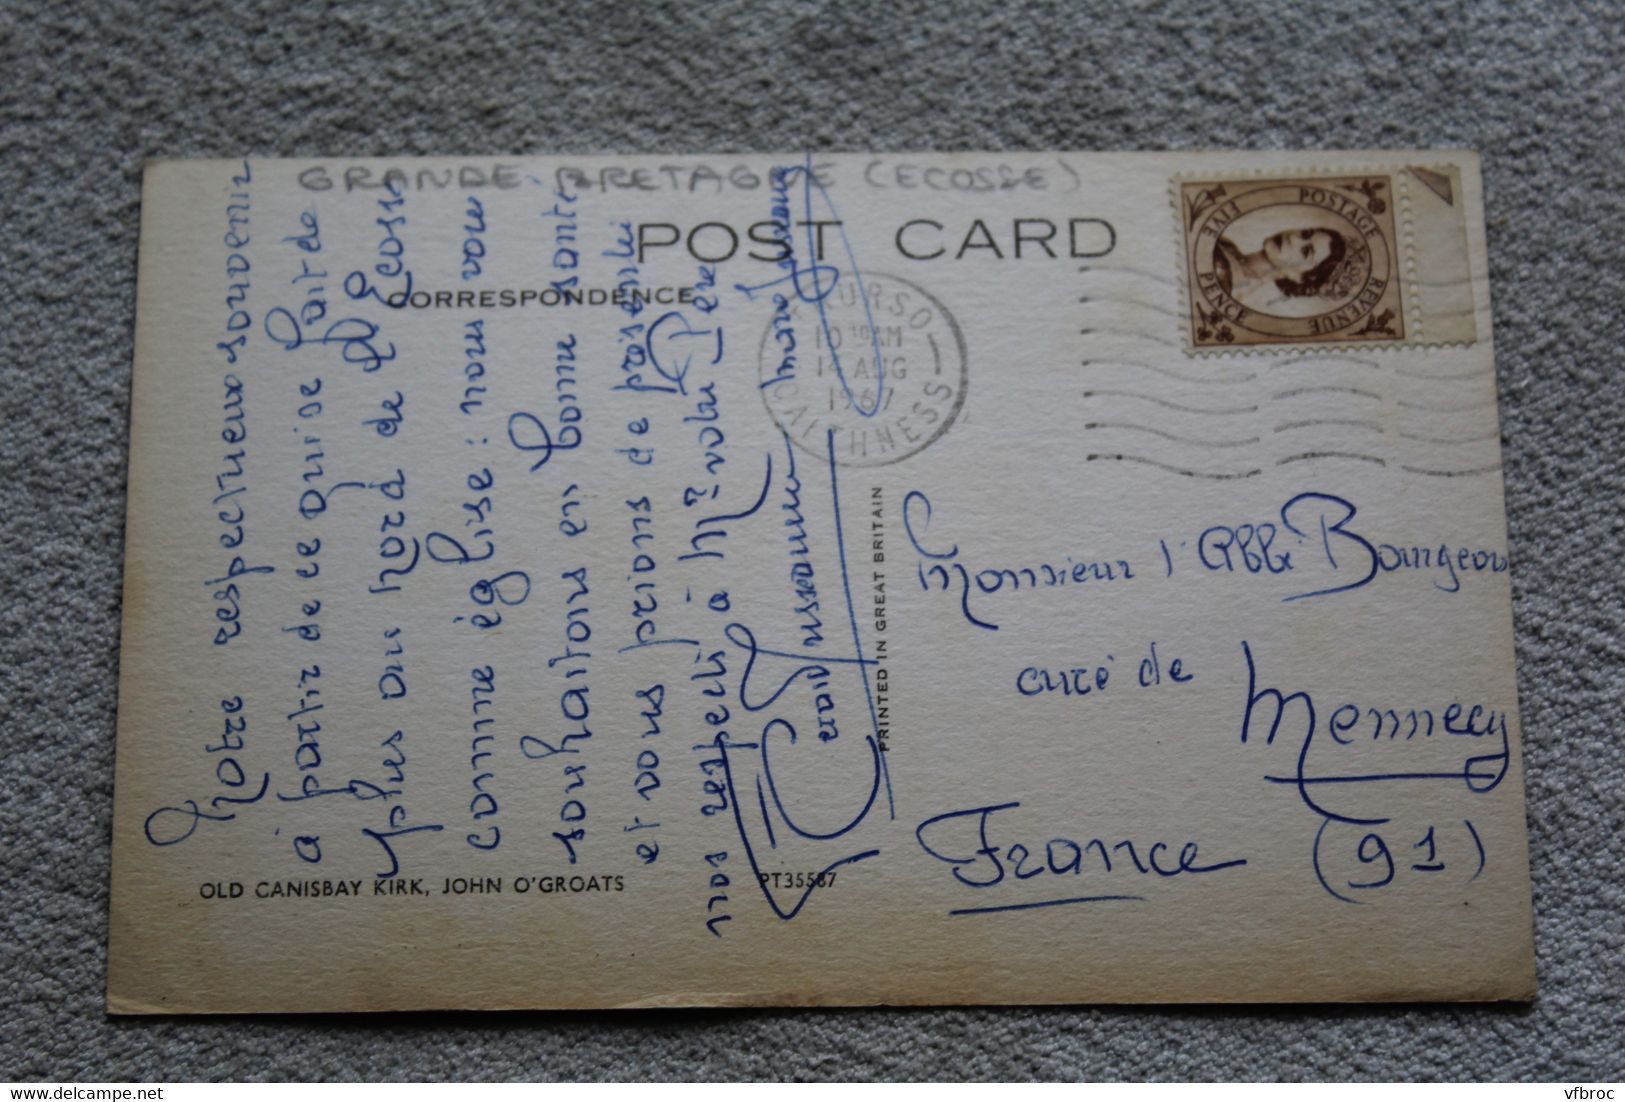 GRANDE BRETAGNE (ECOSSE)
POST CARD
CORRESPONDENCE
FIVE PENCE POSTAGE REVENUE
THURSO
10 10 AM
14 AUG
1967
CAITHNESS
Notre respectueux souvenir
à partir de ce qui se fait de
plus au nord de l'Ecosse
comme église : nous vous
souhaitons en bonne santé
et vous prions de présenter
nos respects à Mr votre Père
PRINTED IN GREAT BRITAIN
Monsieur l'Abbé Bourgeois
curé de
Mennecy
France (91)
OLD CANISBAY KIRK, JOHN O'GROATS
PT35587
vfbroc
delcampe.net